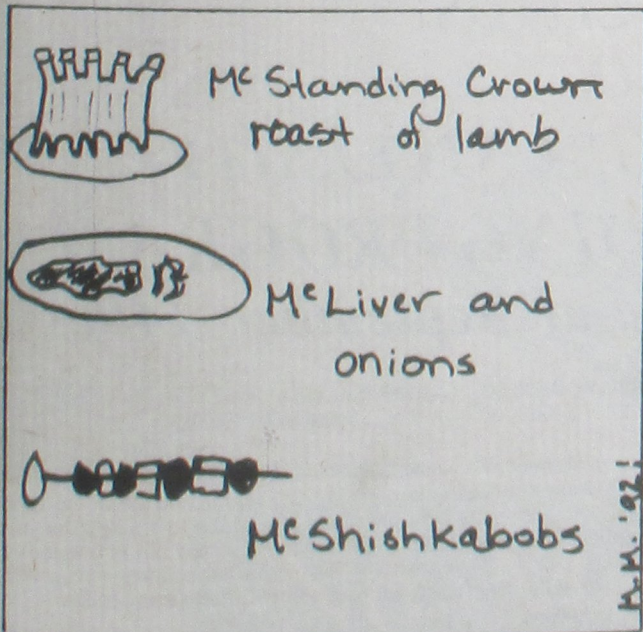 Mc Standing Crown
roast of lamb
Mc Liver and
onions
Mc Shishkabobs
M.M. '92!